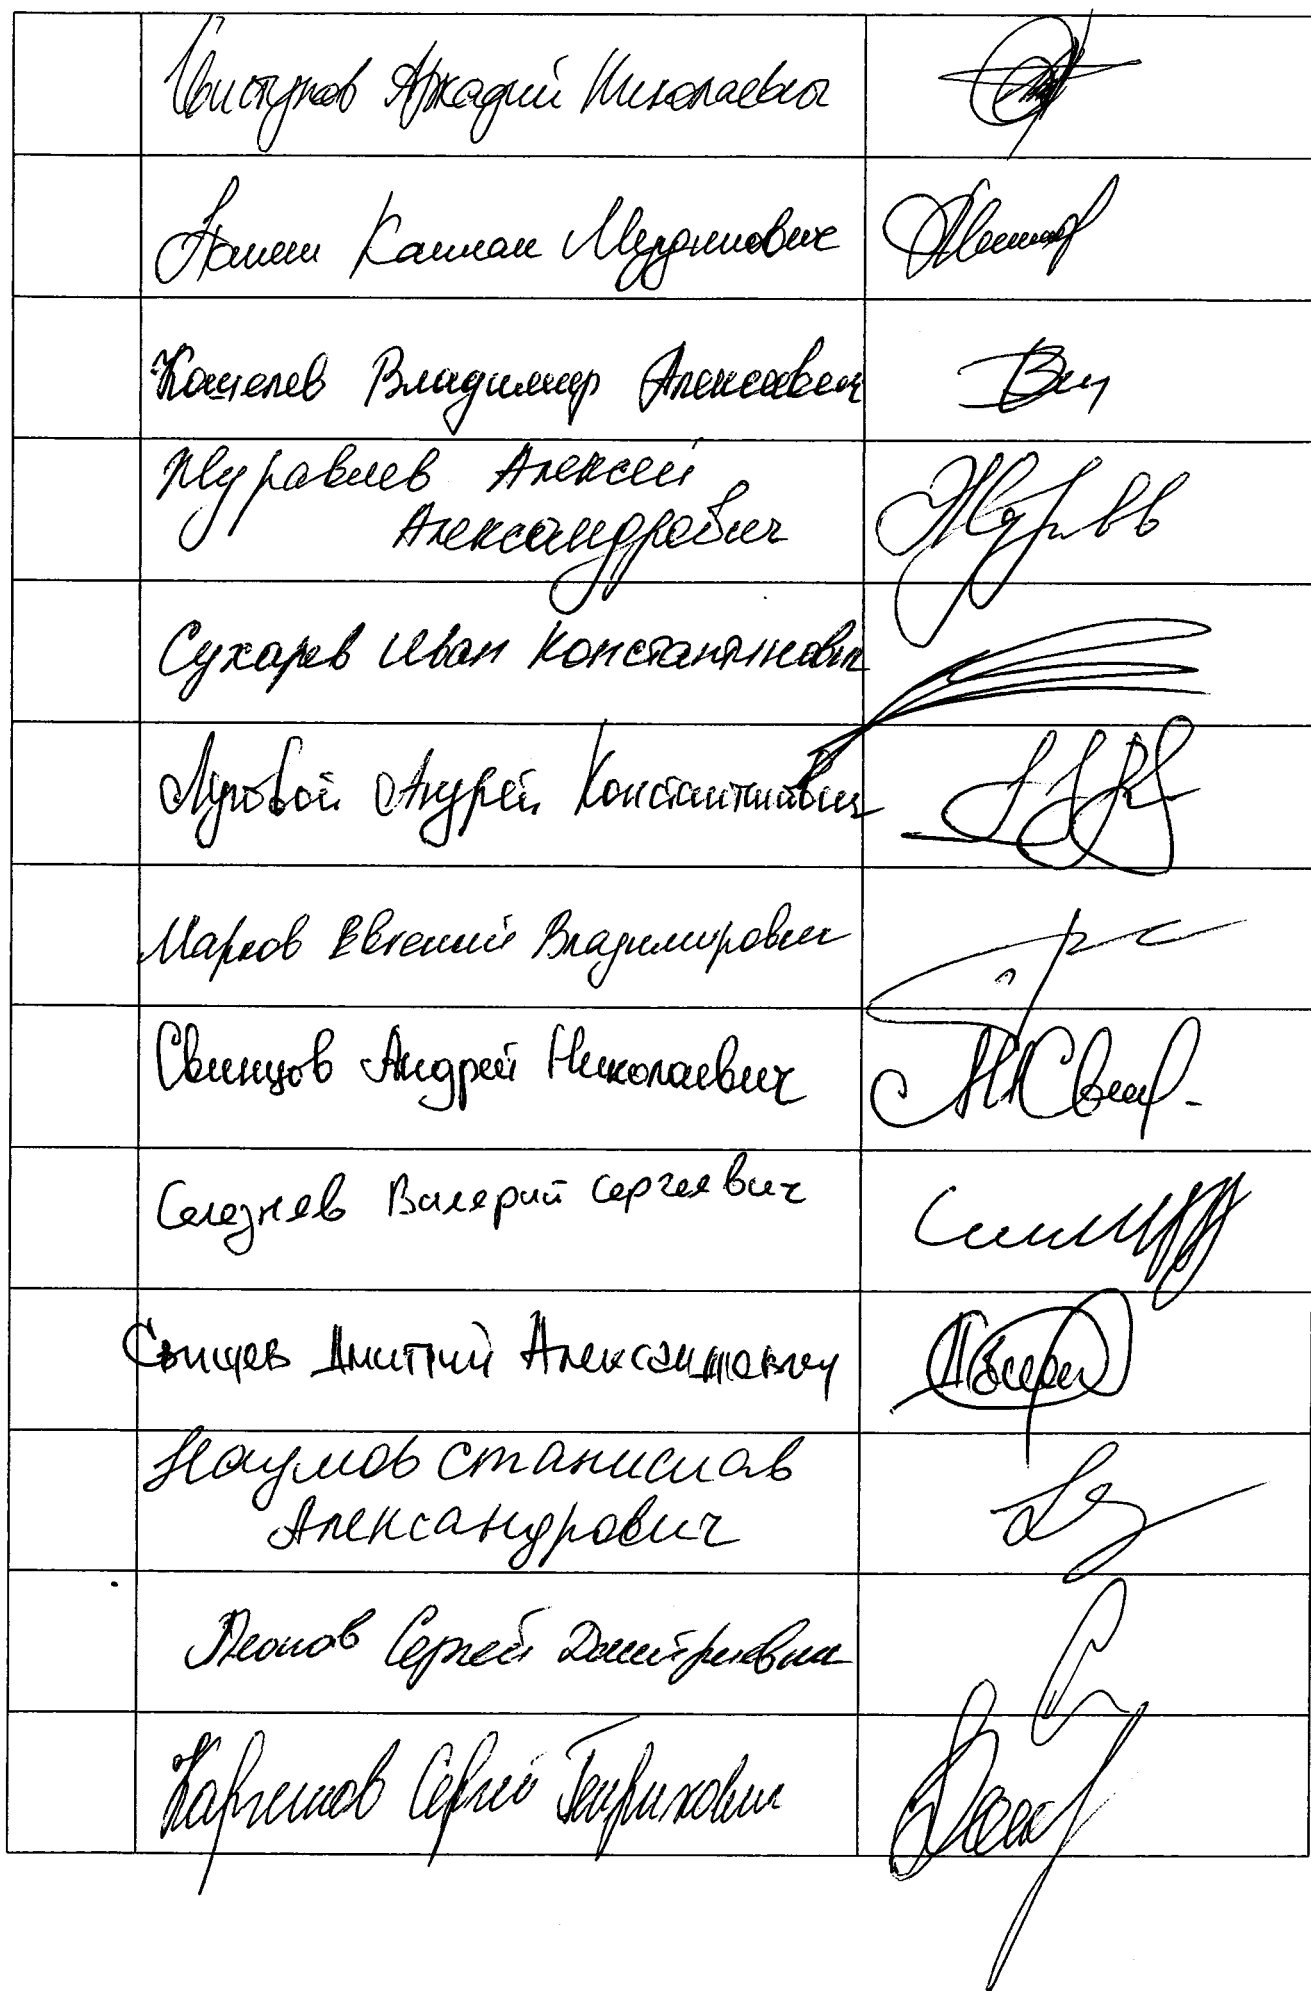 Свистунов Аркадий Николаевич
Панеш Каплан Мугдинович
Кошелев Владимир Алексеевич
Журавлев Алексей
Александрович
Сухарев Иван Константинович
Луговой Андрей Константинович
Марков Евгений Владимирович
Свинцов Андрей Николаевич
Селезнев Валерий Сергеевич
Свищев Дмитрий Александрович
Наумов Станислав
Александрович
Леонов Сергей Дмитриевич
Каргинов Сергей Генрихович